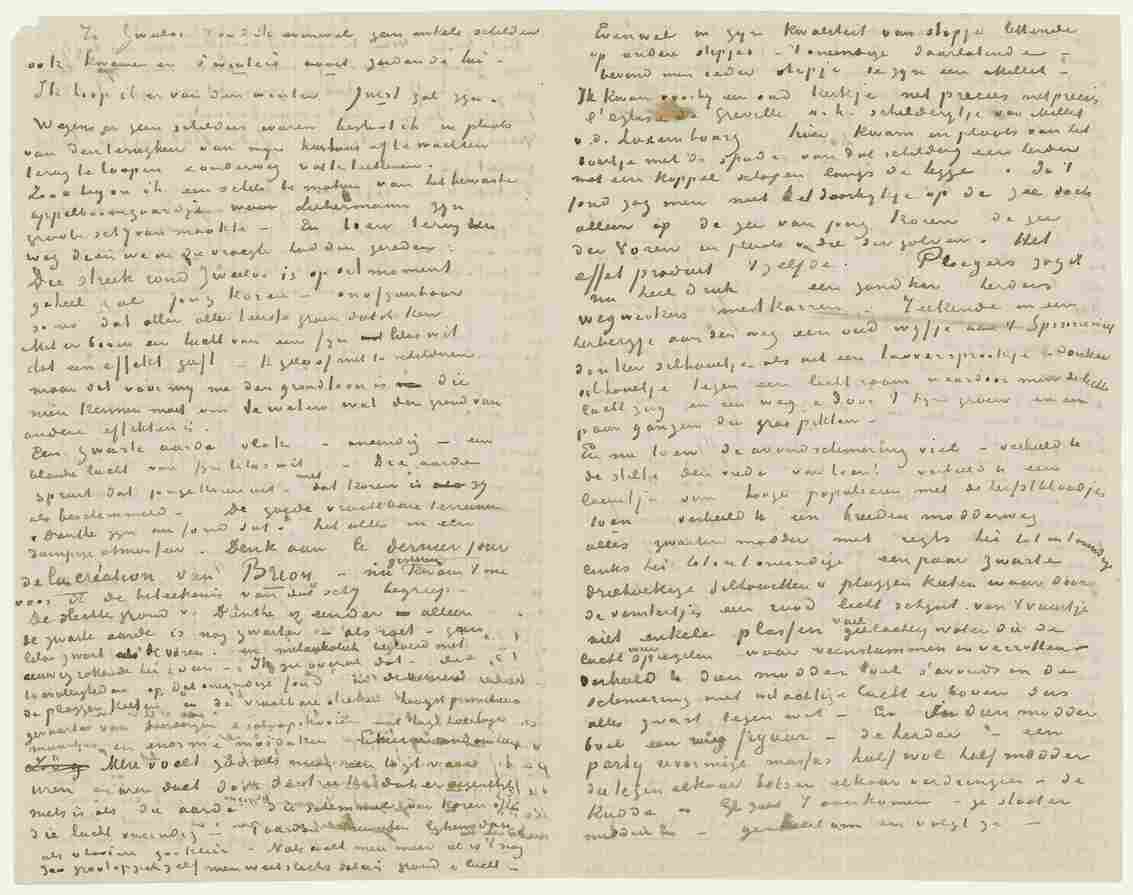 Te Zweeloo vond ik evenwel geen enkele schilder
ook kwamen er s'winters nooit zeiden de lui.
Ik hoop ik er van den winter juist zal zijn.
Wegens er geen schilders waren besloot ik in plaats
van den terugkeer van mijn kastelein af te wachten
terug te loopen & onderweg wat te teekenen.
Zoo begon ik een schets te maken van het bewuste
appelboomgaardje waar Liebermann zijn
groote schij van maakte – En toen terug den
weg dien we in de vroegte hadden gereden.
Die streek rond Zweeloo is op 't moment
geheel jong koren – onafzienbaar
soms dat aller allerteerste groen dat ik ken
Met er boven een lucht van een fijn lilas wit
dat een effekt geeft – ik geloof niet te schilderen
maar dat voor mij me den grondtoon is die
men kennen moet om te weten wat de grond van
andere effekten is.
Een zwarte aarde vlak – oneindig – een
blanke lucht van fijn lilas wit – Die aarde
spruit dat jonge koren uit – dat koren is zij
als beschimmeld – De goede vruchtbare terreinen
v Drenthe zijn au fond dat – het alles in een
dampige atmosfeer. Denk aan le dernier jour
de la création van Brion – nu gisteren kwam 't me
voor de beteekenis van dat schij begreep.
De slechte grond v. Drenthe is eender – alleen
de zwarte aarde is nog zwarter – als roet – geen
lilas zwart als de voren. en melankoliek begroeid met
eeuwig rottende hei & veen – Ik zie overal dat – die
toevalligheden op dat oneindige fond in de veenen
de plaggen keeten in de vruchtbare streken hoogst primitieve
gevaarten van boerderijen & schaapskooien met lage heel lage
muurtjes en enorme mosdaken
Men voelt gedurende
uren & uren door de streek dat er eigenlijk
niets is als die aarde oneindig die schimmel van koren of hei
die lucht oneindig – Paarden menschen lijken dan
als vlooien zoo klein – Niets voelt men meer al is 't nog
zoo groot op zich zelf men weet slechts dat er grond is & lucht –
Evenwel in zijn kwaliteit van stipje lettende
op andere stipjes – 't oneindige daarlatende –
bevond men ieder stipje te zijn een Millet –
Ik kwam voorbij een oud kerkje net precies net precies
l'Eglise de Greville u.h. schilderijtje van Millet
v.d. Luxembourg hier kwam in plaats van het
boertje met de spade van dat schilderij een herder
met een koppel schapen langs de hegge. In 't
fond zag men niet het doorkijkje op de zee doch
alleen op de zee van jong koren de zee
der voren in plaats v. die der golven. Het
effet produit 't zelfde. Ploegers zag ik
nu heel druk een zandkar herders
wegwerkers mestkarren. Teekende in een
herbergje aan den weg een oud wijfje aan 't spinnewiel
donker silhouetje als uit een toversprookje – donker
silhouetje tegen een licht raam waardoor men de lichte
lucht zag en een wegje door 't fijn groen en een
paar ganzen die gras pikten –
En nu toen de avondschemering viel – verbeeld U
de stilte den vrede van toen! verbeeld U een
laantje van hooge populieren met de herfstblaadjes
toen verbeeld U een breeden modderweg
alles zwarten modder met regts hei tot in 't oneindige
links hei tot in 't oneindige een paar zwarte
driehoekige silhouetten v plaggen keeten waar door
de venstertjes een rood licht schijnt van 't vuurtje
met enkele plassen vuil geelachtig water die de
lucht weerspiegelen waar veenstammen in verrotten –
verbeeld U dien modder boel s'avonds in de
schemering met witachtige lucht er boven dus
alles zwart tegen wit – En in dien modder
boel een ruig figuur – de herder – een
partij eivormige massas half wol half modder
die tegen elkaar botsen elkaar verdringen – de
kudde – Ge ziet 't aankomen – ge staat er
midden in – ge keert om en volgt ze –